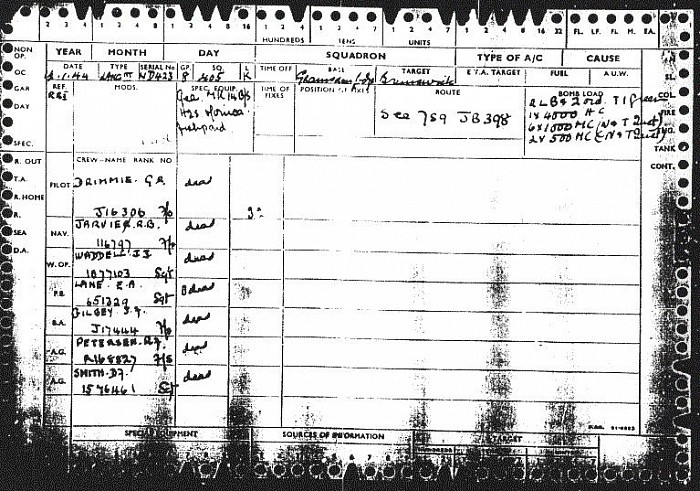 2 4 8 2 4 8 2 4 8 16 1 2 4 8 1 2 4 8 1 2 4 8 16 32 FL. LF. F. M. EA.
HUNDREDS TENS UNITS
NON OP. YEAR MONTH DAY SQUADRON TYPE OF A/C CAUSE
OC TYPE SERIAL No GP. SQ. L TIME OFF BASE TARGET E.T.A. TARGET FUEL A.U.W. SL.
.1.44 LANC III ND423 8 405 K Brunswick
GAR REF. MODS. SPEC. EQUIP. TIME OF FIXES POSITION OF FIXES ROUTE BOMB LOAD COL.
DAY Gee MK 14 B/S See 759 JB398 T1 green
H2S Monica 1x 4000 HC FIRE
Fishpond 6x1000 MC (N&T Inst) ENG.
SPEC. 2x 500 MC (N&T Inst) TANK
R. OUT CREW-NAME RANK NO CONT.
T.A. PILOT DRIMMIE. G.R. dead
R. HOME J16306 F/O
R. NAV. JARVIE. R.B. dead
SEA 116797 F/O
D.A. W.OP. WADDELL. J.J dead
1877103 Sgt
F.E. LANE. E.A. dead
651329 Sgt
B.A. GILBEY. S.F. dead
J17444 F/O
A.G. PETERSEN. R.F. dead
R168827 F/S
A.G. SMITH. D.F. dead
1576461 Sgt
SPECIAL EQUIPMENT SOURCES OF INFORMATION TARGET